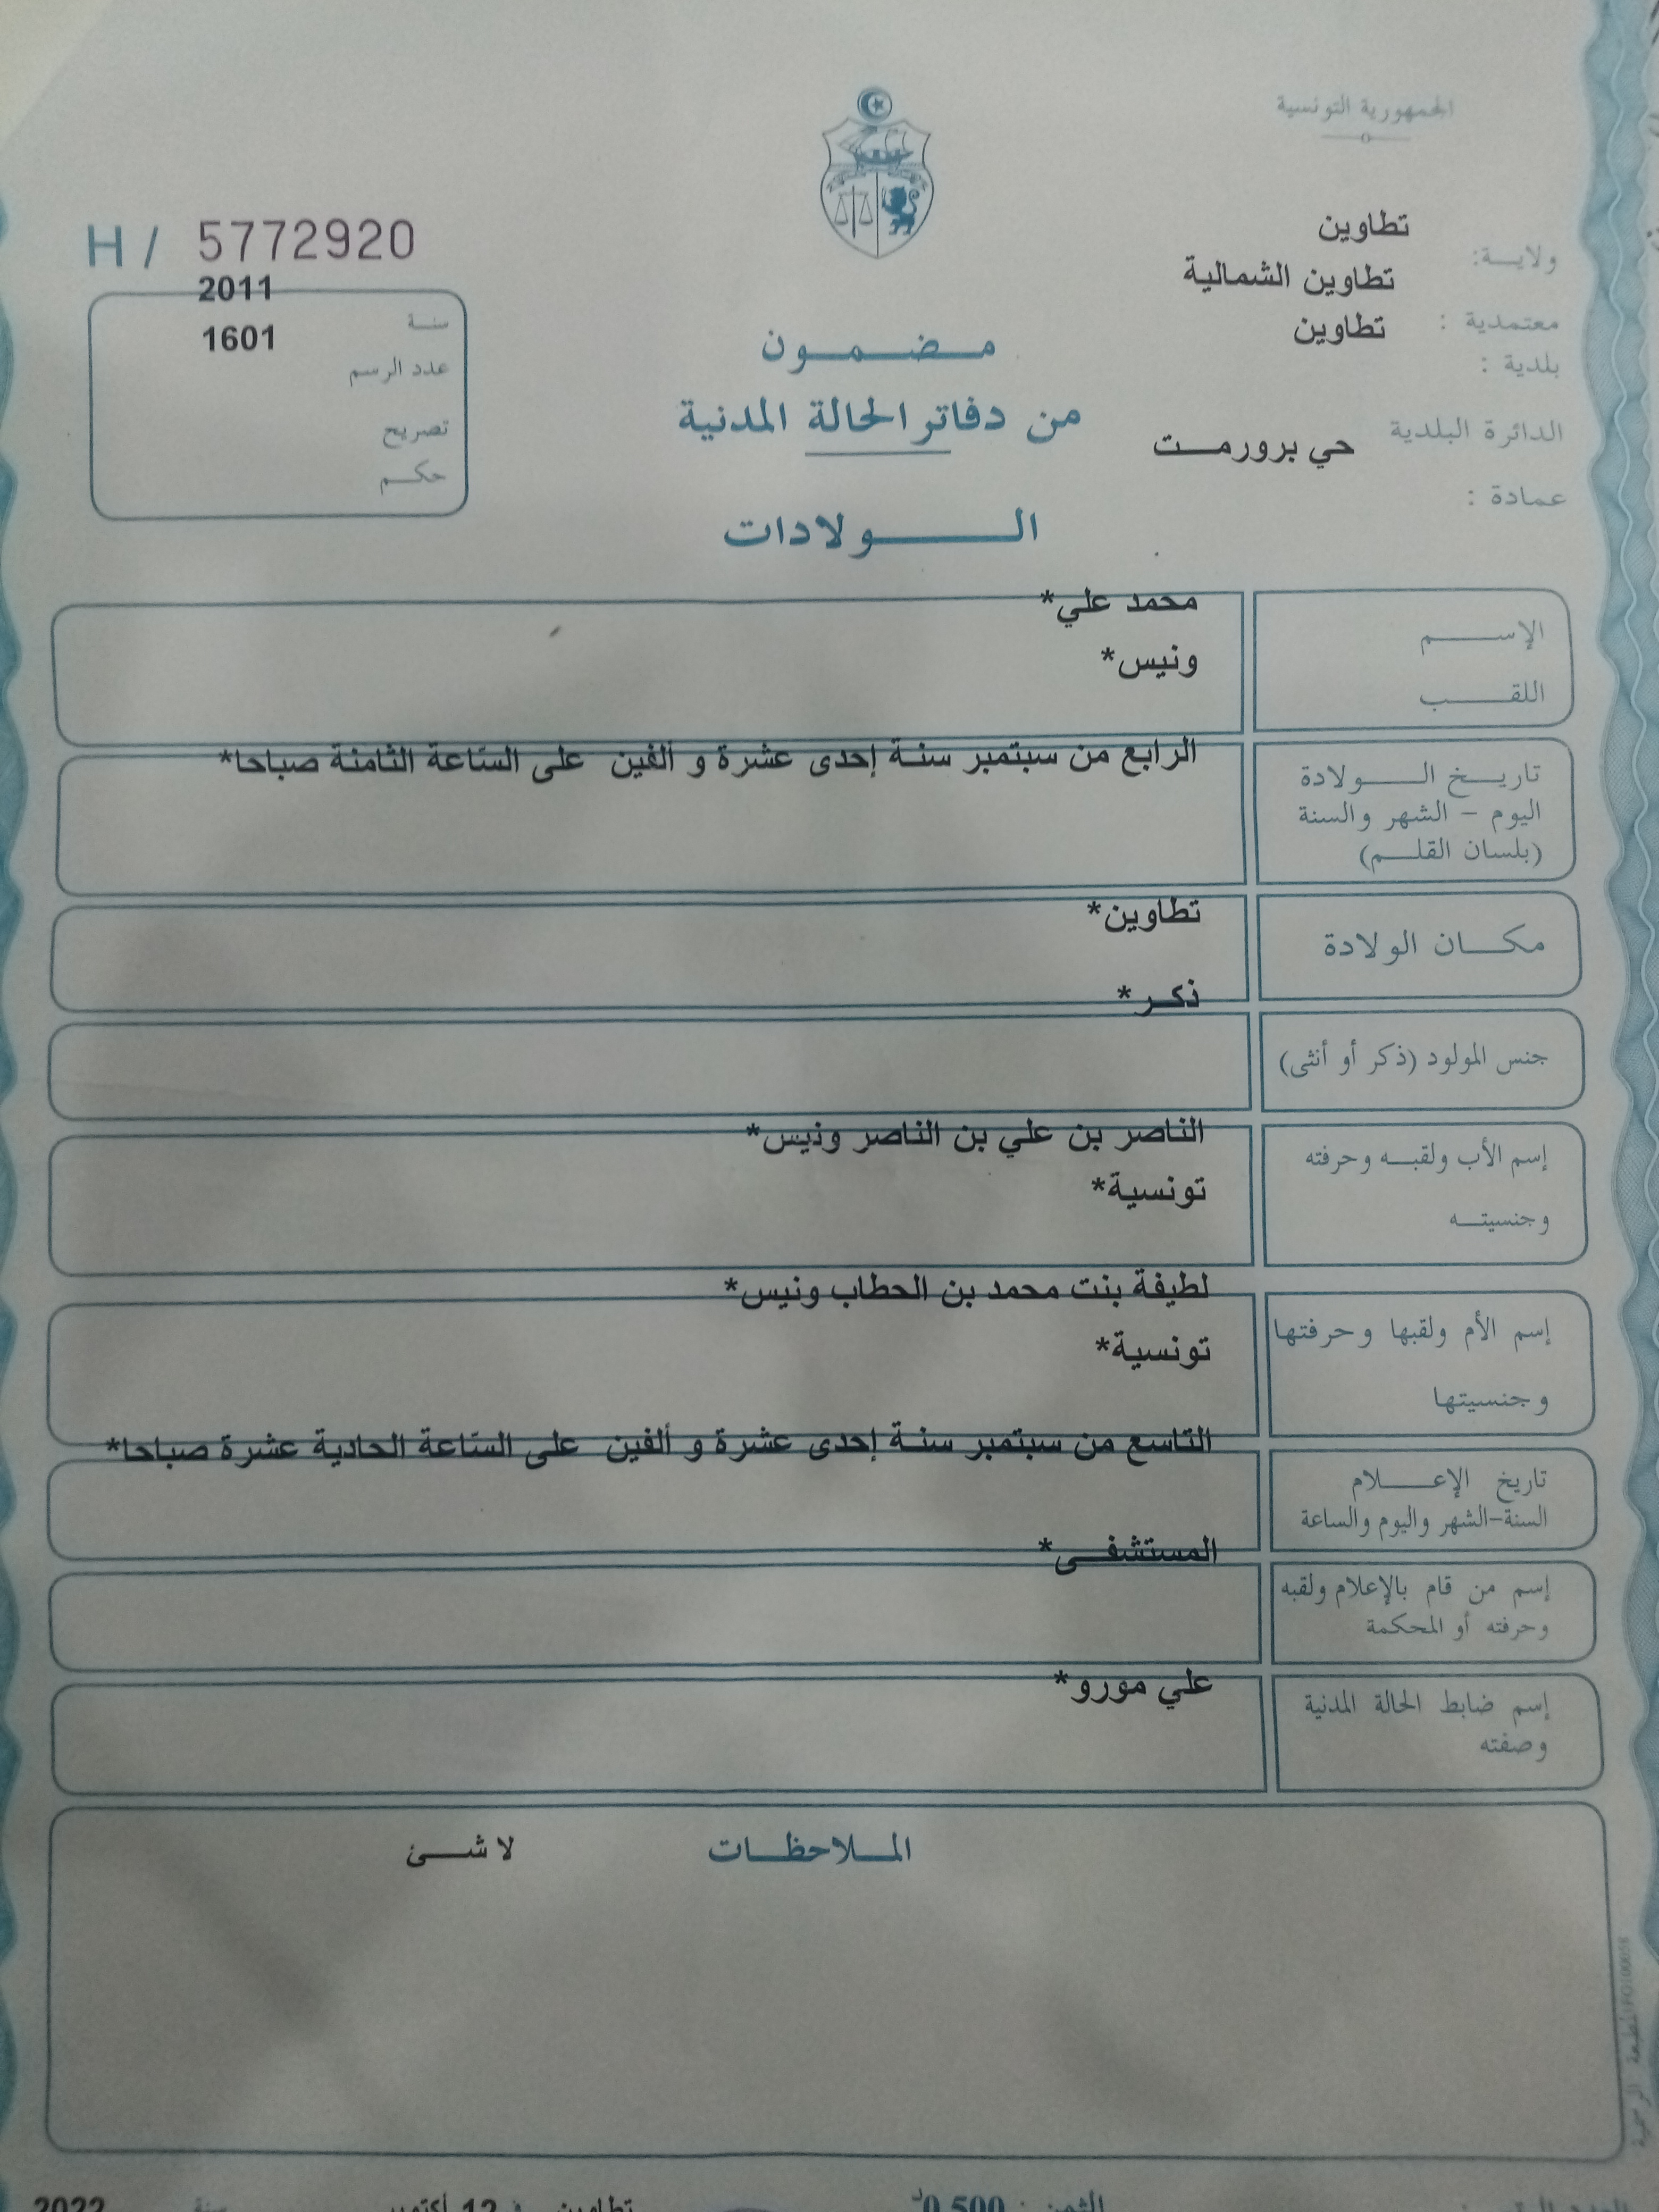 الجمهورية التونسية
ولاية: تطاوين
معتمدية : تطاوين الشمالية
بلدية : تطاوين
الدائرة البلدية حي برورمت
عمادة :
H / 5772920
سنة 2011
عدد الرسم 1601
تصريح
حكم
مضمون
من دفاتر الحالة المدنية
الولادات
الإسم محمد علي*
اللقب ونيس*
تاريخ الولادة
اليوم - الشهر والسنة
(بلسان القلم)
الرابع من سبتمبر سنة إحدى عشرة و ألفين على السّاعة الثامنة صباحا*
مكان الولادة تطاوين*
جنس المولود (ذكر أو أنثى) ذكر*
إسم الأب ولقبه وحرفته
الناصر بن علي بن الناصر ونيس*
وجنسيته تونسية*
إسم الأم ولقبها وحرفتها
لطيفة بنت محمد بن الحطاب ونيس*
وجنسيتها تونسية*
تاريخ الإعلام
السنة-الشهر واليوم والساعة
التاسع من سبتمبر سنة إحدى عشرة و ألفين على السّاعة الحادية عشرة صباحا*
إسم من قام بالإعلام ولقبه
وحرفته أو المحكمة
المستشفى*
إسم ضابط الحالة المدنية
وصفته
علي مورو*
الملاحظات لا شئ
الثمن : 0,500د تطاوين في 12 أكتوبر سنة 2022